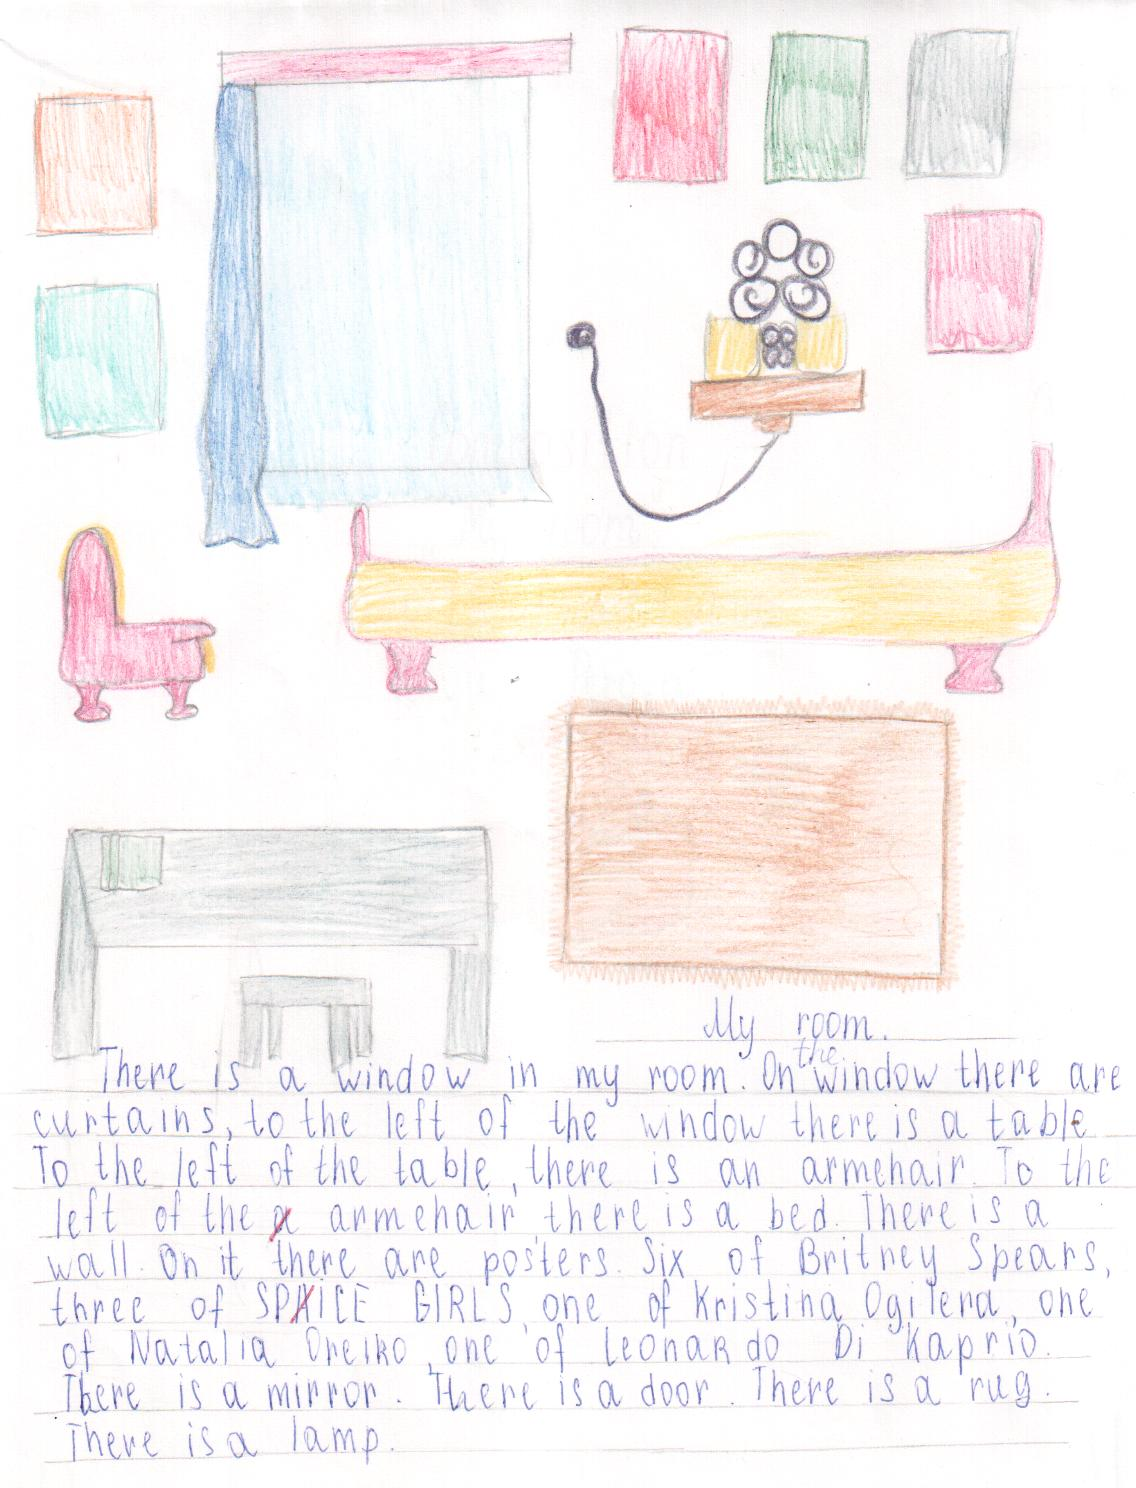 My room.
There is a window in my room. On the window there are
curtains, to the left of the window there is a table
To the left of the table, there is an armehair. To the
left of the armehair there is a bed. There is a
wall. On it there are posters. Six of Britney Spears,
three of SPICE GIRLS, one of Kristina Ogilera, one
of Natalia Oreiko, one of Leonardo Di Kaprio.
There is a mirror. There is a door. There is a rug.
There is a lamp.